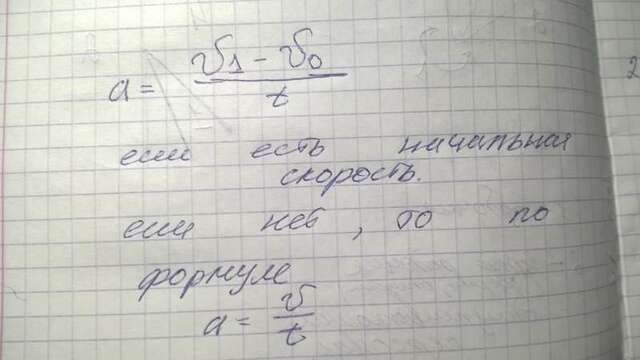 a = (v₁ - v₀) / t
если есть начальная
скорость.
если нет, то по
формуле
a = v / t
2